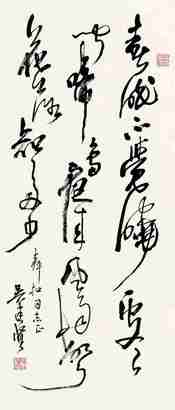 春眠不覺曉處々
聞啼鳥夜来風雨聲
花落知多少
同志正